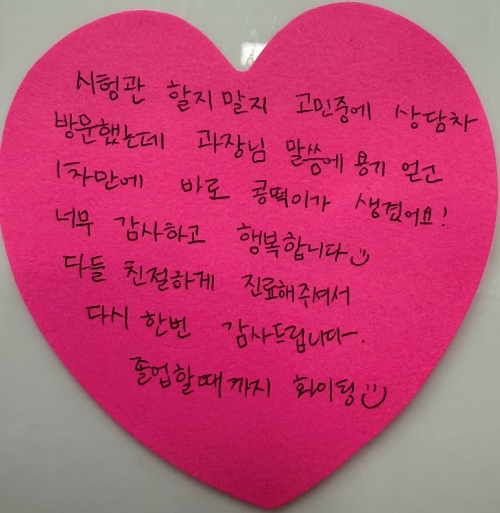 시험관 할지말지 고민중에 상담차
방문했는데 과장님 말씀에 용기 얻고
1차만에 바로 콩떡이가 생겼어요!
너무 감사하고 행복합니다
다들 친절하게 진료해주셔서
다시 한번 감사드립니다.
졸업할때까지 화이팅